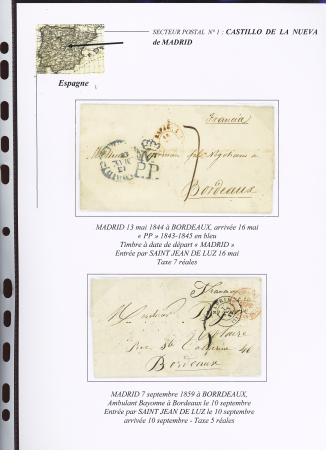 SECTEUR POSTAL N° 1 : CASTILLO DE LA NUEVA
de MADRID
Espagne
Francia
7
P.P.
Bordeaux
MADRID 13 mai 1844 à BORDEAUX, arrivée 16 mai
« PP » 1843-1845 en bleu
Timbre à date de départ « MADRID »
Entrée par SAINT JEAN DE LUZ 16 mai
Taxe 7 réales
Monsieur
Bordeaux
MADRID 7 septembre 1859 à BORRDEAUX,
Ambulant Bayonne à Bordeaux le 10 septembre
Entrée par SAINT JEAN DE LUZ le 10 septembre
arrivée 10 septembre - Taxe 5 réales